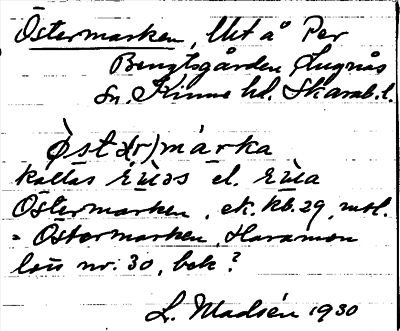 Östermarken, Ukt å Per
Bengtsgården Lugnås
sn. Kinne hd. Skarab.l.
öst(r)márka
kallas el.
Östermarken, ek. kb. 29,
= Östermarken,
nr. 30, bek?
L. Madsén 1930